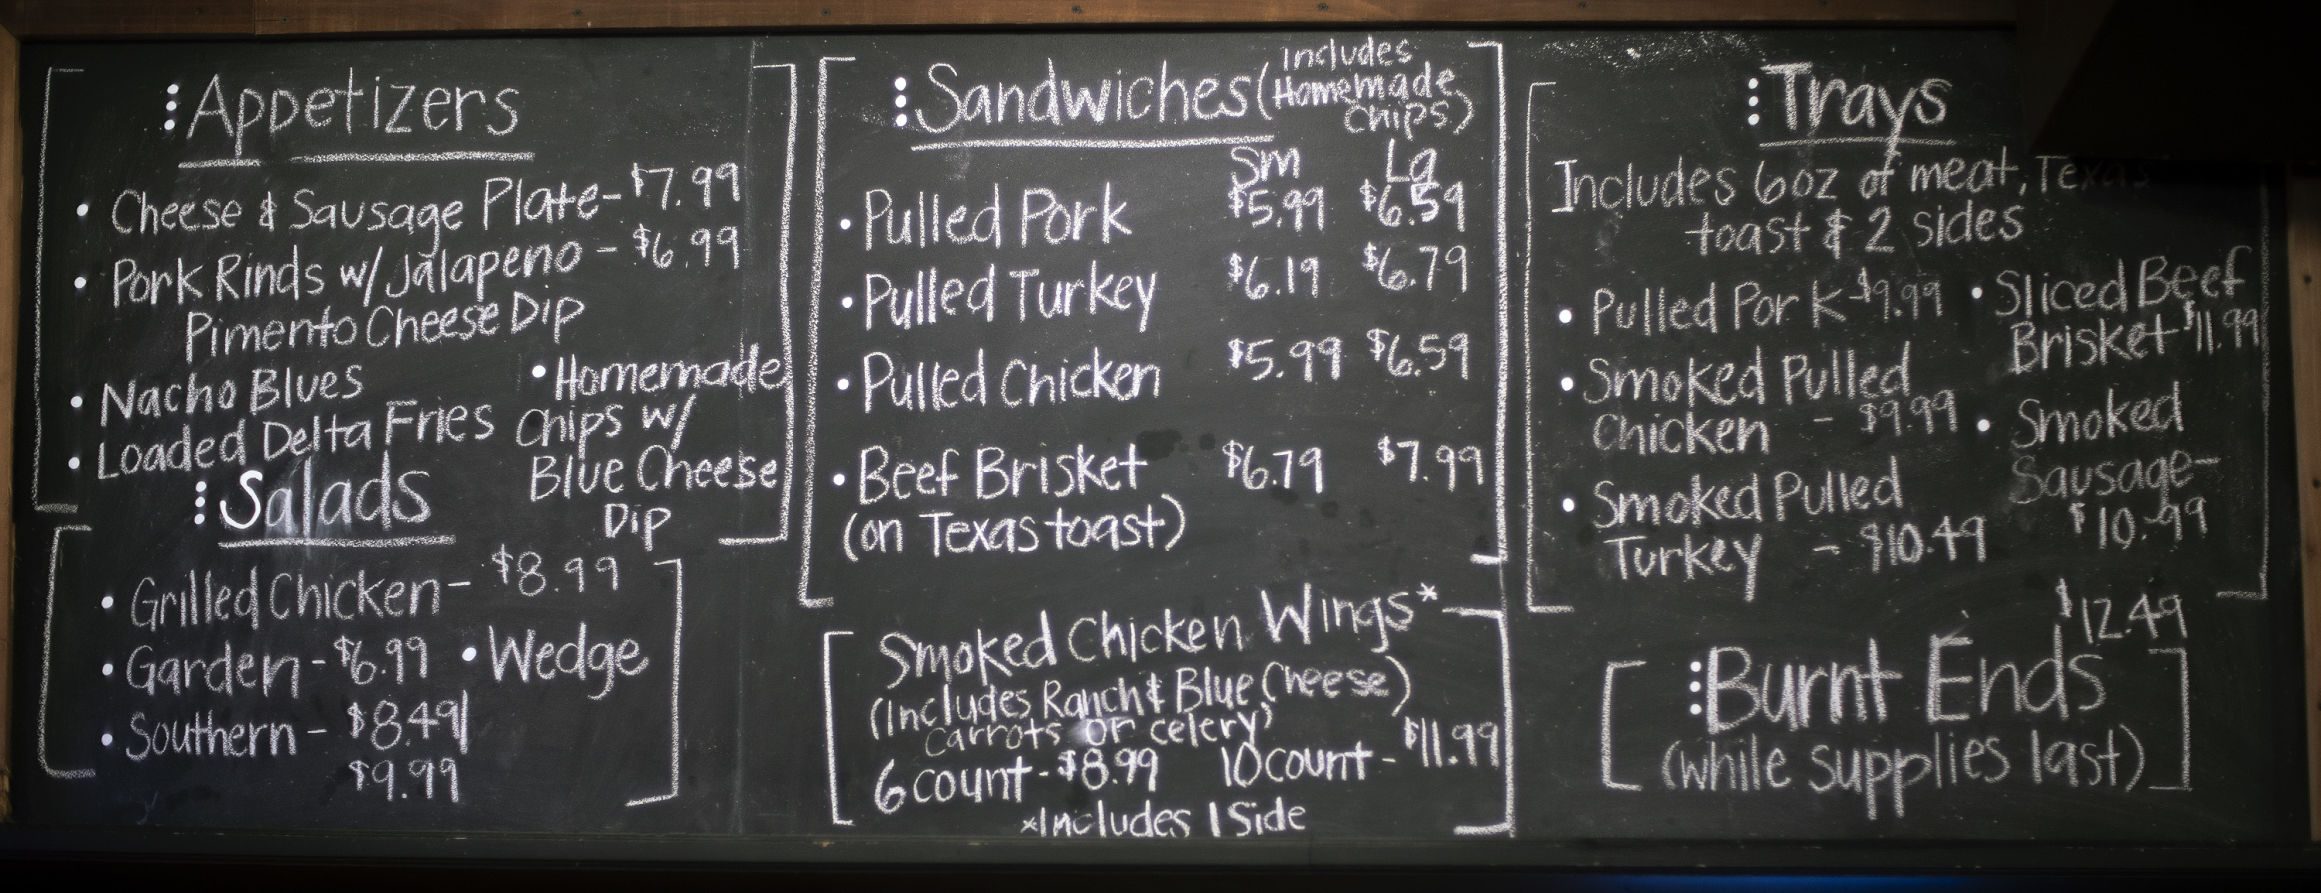 Appetizers
• Cheese & Sausage Plate - $7.99
• Pork Rinds w/ Jalapeno - $6.99
Pimento Cheese Dip
• Nacho Blues
• Loaded Delta Fries
• Homemade
Chips w/
Blue Cheese
Dip
Salads
• Grilled Chicken - $8.99
• Garden - $6.99 • Wedge
• Southern - $8.49/
$9.99
Sandwiches (includes
Homemade
chips)
Sm Lg
• Pulled Pork $5.99 $6.59
• Pulled Turkey $6.19 $6.79
• Pulled Chicken $5.99 $6.59
• Beef Brisket $6.79 $7.99
(on Texas toast)
Smoked Chicken Wings*
(includes Ranch & Blue Cheese)
carrots or celery)
6 count - $8.99 10 count - $11.99
*Includes 1 Side
Trays
Includes 6oz of meat, Texas
toast & 2 sides
• Pulled Pork $9.99
• Smoked Pulled
Chicken - $9.99
• Smoked Pulled
Turkey - $10.49
• Sliced Beef
Brisket $11.99
• Smoked
Sausage -
$10.99
$12.49
Burnt Ends
(while supplies last)